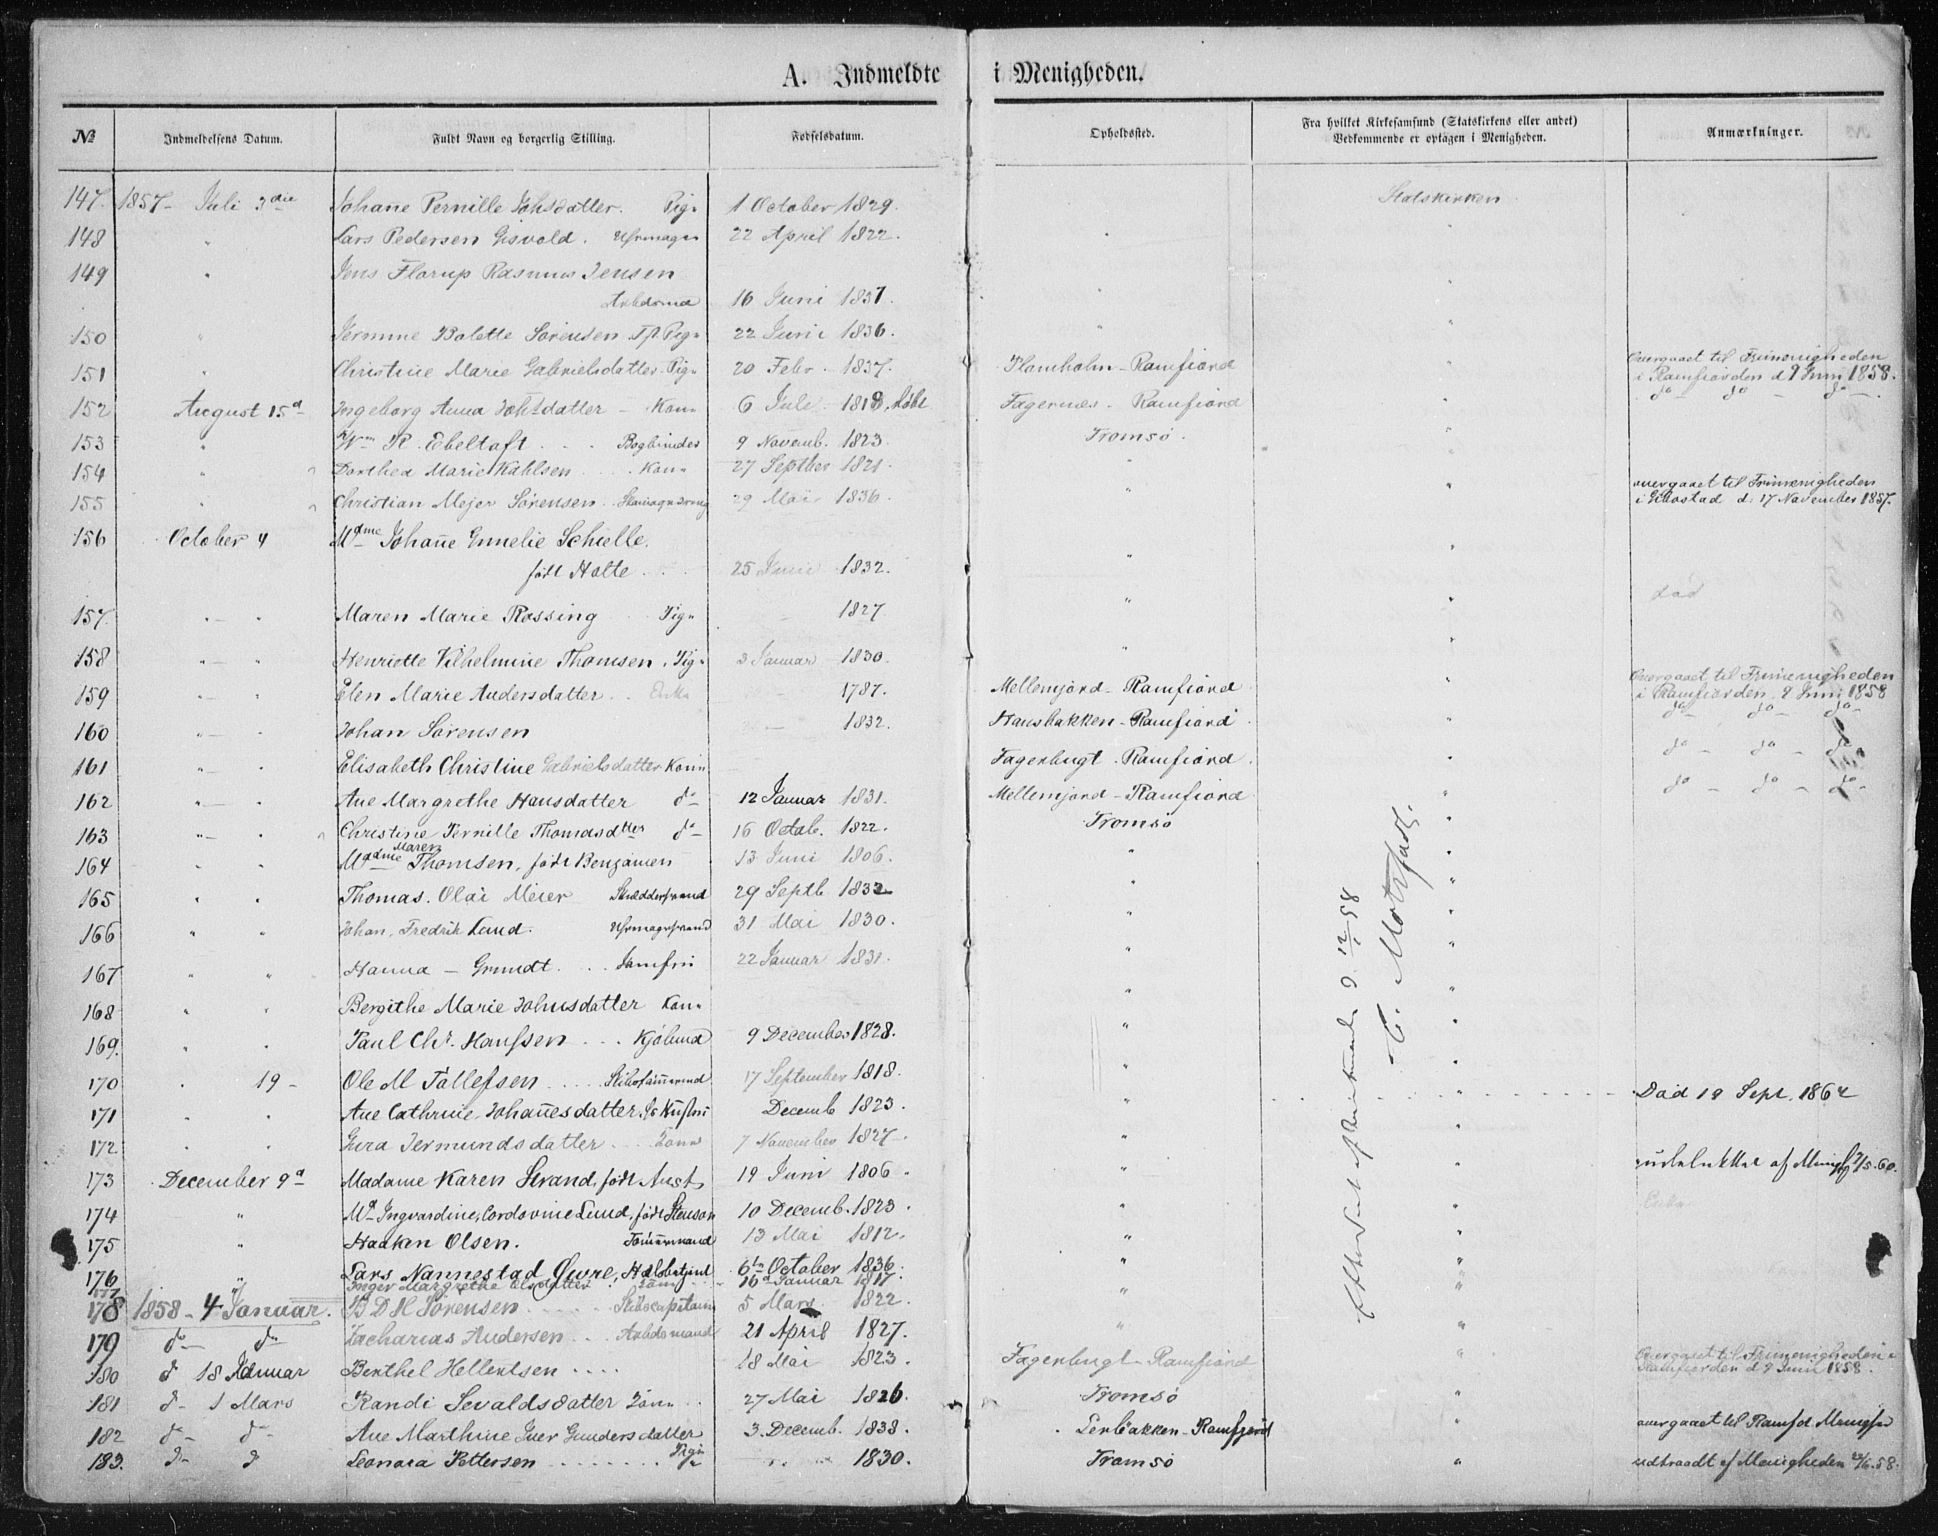 A. Indmeldte i Menigheden.
No Indmeldelsens Datum. Fuldt Navn og borgerlig Stilling. Fødselsdatum. Opholdssted. Fra hvilket Kirkesamfund (Statskirkens eller andet) Anmærkninger.
Vedkommende er optagen i Menigheden.
147. 1857- Juli 3die Johane Pernille Johsdatter. Pige 1 October 1829. Statskirken
148 " Lars Pedersen Gisvold. Uhrmager 22 April 1822. " "
149 " Jens Florup Rasmus Jensen
Arbdsmd 16 Juni 1837. " "
150 " Bolette Sørensen Pige 22 Juni 1836. " "
151 " Christine Marie Gabrielsdatter Pige 20 Febr. 1837. Ramfiord " Overgaaet til Frimenigheden
i Ramfiorden d 9 Juni 1858.
152 August 15d Ingeborg Anna Johsdatter - Kone 6 Juli - 1818, døbt Fagernes - Ramfiord " do do - do -
153 " Wm R. Ebeltoft . . . Bogbinder 9 Novemb. 1823 Tromsø. "
154 " Dorthea Marie Kahlsen . . Kone 27 Septber 1821. " "
155 " Christian Mejer Sørensen. 29 Mai 1836. " " overgaaet til Frimenigheden
i Ibbostad d: 17 November 1857.
156 October 4 Mdme Johane Emelie Schielle,
født Holte . . . 25 Juni 1832. " "
157. " - " Maren Marie Rossing Pige 1827 " " død
158 " - " Henriette Vilhelmine Thomsen. Pige 3 Januar 1830. "
159 " - " Elen Marie Andersdatter . . Enke 1787. Mellemjord - Ramfiord " Overgaaet til Frimenigheden
i Ramfiorden 9 Juni 1858
160 " - " Johan Sørensen 1832. Hansbakken - Ramfiord " do - do - do -
161 " - " Elisabeth Christine Gabrielsdatter Kone Fagerbugt - Ramfiord. " do - do - do
162 " - " Ane Margrethe Hansdatter do - 12 Januar 1831. Mellemjord - Ramfiord " do - do - do -
163 " - " Christine Pernille Thomasdtter do - 16 Octob. 1822. Tromsø "
164 " " Madme Maren Thomsen, født Benjamen 13 Juni 1806. " "
165 " " Thomas. Olai Meier Skrædersvend 29 Septb. 1832 " "
166 " " Johan, Fredrik Lund. Uhrmagersvend 31 Mai 1830. " "
167 " " Hanna - Grundt . . . Jomfru 22 Januar 1831. "
168 " " Bergithe Marie Johnsdatter Kone " "
169. " " Paul Chr. Hanssen . . . Kjøbmd 9 December 1828. " "
170 " 19 - Ole M Tollefsen . . . . Skibstømmermd 17 September 1818. " "
171 " " Ane Cathrine, Johanesdatter, Decemb 1823. " " Død 19 Sept. 1864
172 " " Gura Jermundsdatter . . . Kone 7 November 1827. " "
173 December 9d Madame Karen Strand, født Aust 19 Juni 1806. " udelukket af Menigh 2/5.60.
174 " Md Ingvardine, Cordovine Lund, født Stenson 10 Decemb. 1823. " " Enke
175 " Haaken Olsen. Tømmermand 13 Mai 1812. " "
176 " Lars Nannestad Øwre, 6te October 1836. " "
177 Inger Margrethe Olsdatter Kone 16d Januar 1817. "
178 1858 - 4 Januar. B D H Sørensen . . . . . Skibscapitain 5 Mars 1822. "
179 do - do Zacharias Andersen . . . Arbdsmand 21 April 1827. " "
180 d 18 Januar Berthel Hellentsen . . . . 18 Mai 1823. Fagerbugt - Ramfiord " Overgaaet til Frimenigheden i
Ramfiorden d 9 Juni 1858.
181 d - 1 Mars Randi Sevaldsdatter Kone . . 27 Mai 1826. Tromsø "
182 do - do - Ane Marthine Iver Gundersdatter 3. Decemb. 1838. Lerbakken - Ramfjord " overgaaet til Ramfd. Menighed
183. d - d Leonora Pettersen . . . . . . . Pige 1830. Tromsø " udtraadt af Menigheden 24/6.58.
Efterseet 9/12 58
C. Motzfeldt